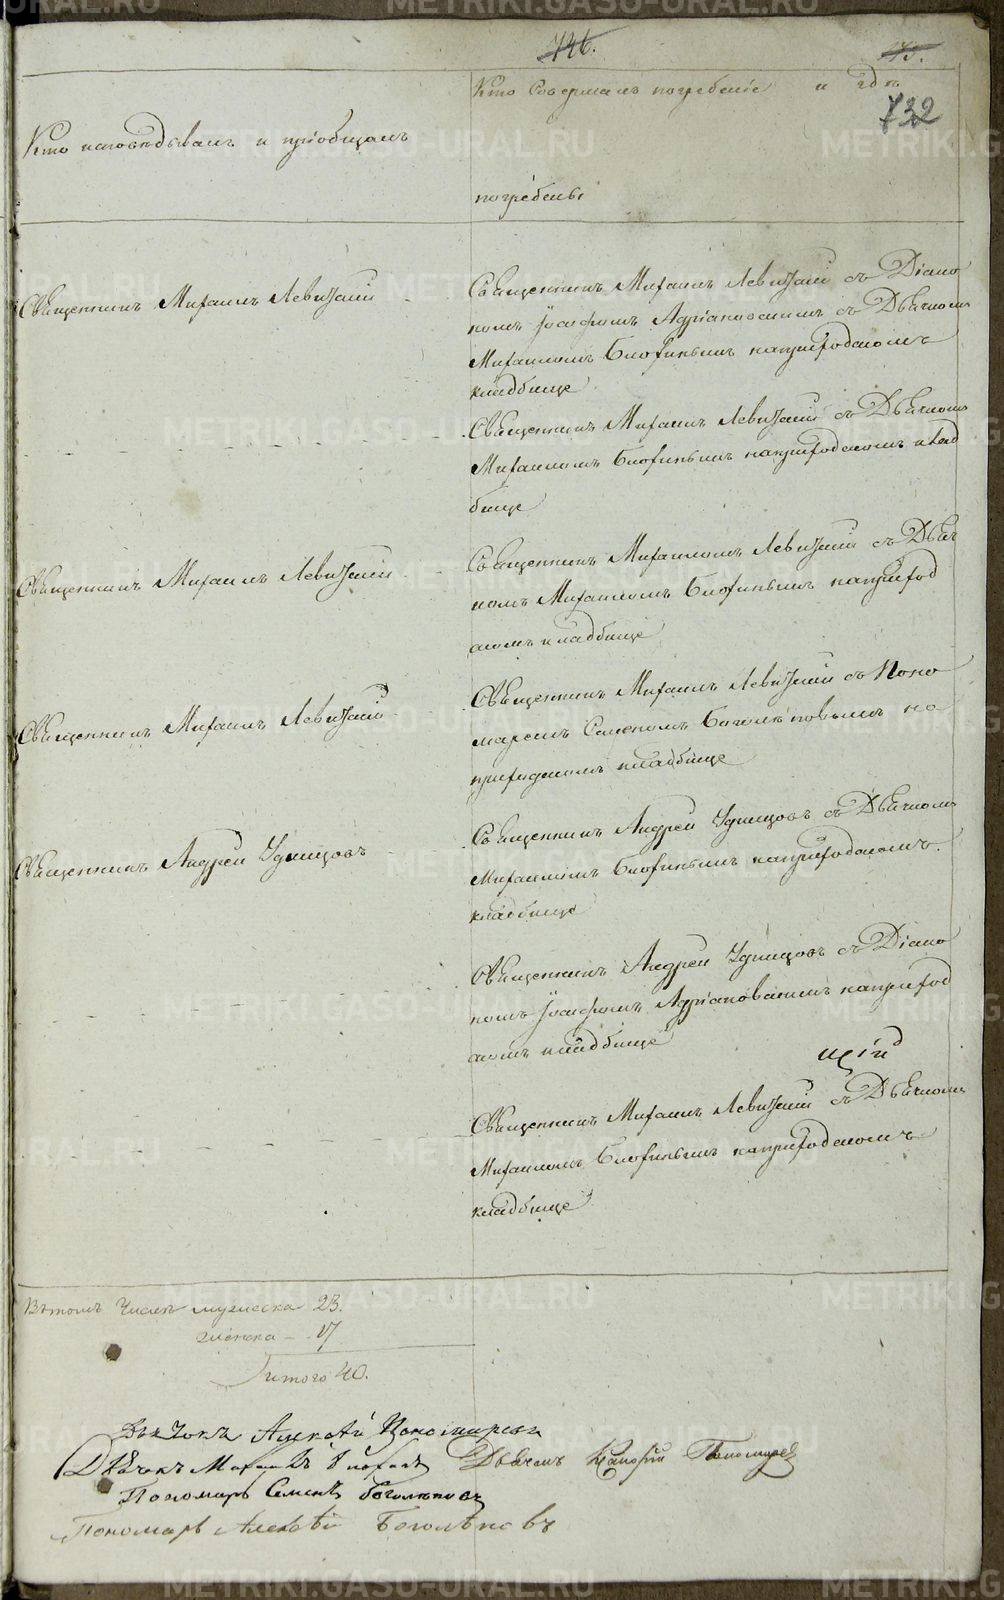 746.
75.
732
Кто исповѣдывалъ и пріобщалъ
Кто Совершалъ погребеніе и гдѣ
погребены
Священникъ Михаилъ Левицкій
Священникъ Михаилъ Левицкій съ Діако
номъ Іосифомъ Адріановскимъ съ Дьячкомъ
Михаиломъ Блохинымъ наприходскомъ
кладбище
Священникъ Михаилъ Левицкій съ Дьячкомъ
Михаиломъ Блохинымъ наприходскомъ клад
бище
Священникъ Михаилъ Левицкій
Священникъ Михаиломъ Левицкій съ Дьяч
комъ Михаиломъ Блохинымъ наприход
скомъ кладбище
Священникъ Михаилъ Левицкій
Священникъ Михаилъ Левицкій съ Поно
маремъ Семеномъ Боголѣповымъ на
приходскомъ кладбище
Священникъ Андрей Удинцовъ
Священникъ Андрей Удинцовъ съ Дьячкомъ
Михаиломъ Блохинымъ наприходскомъ
кладбище
Священникъ Андрей Удинцовъ съ Діако
номъ Іосифомъ Адріановскимъ наприход
скомъ кладбище
Священникъ Михаилъ Левицкій съ Дьячкомъ
Михаиломъ Блохинымъ наприходскомъ
кладбище
Въ томъ Числѣ мужеска 23.
женска – 17
Итого 40.
Дьячокъ Алексѣй Пономаревъ
Дьячокъ Михаилъ Блохинъ Дьячекъ Пономарев
Пономарь Семенъ Боголеповъ
Пономарь Алексѣй Боголѣповъ
METRIKI.GASO-URAL.RU